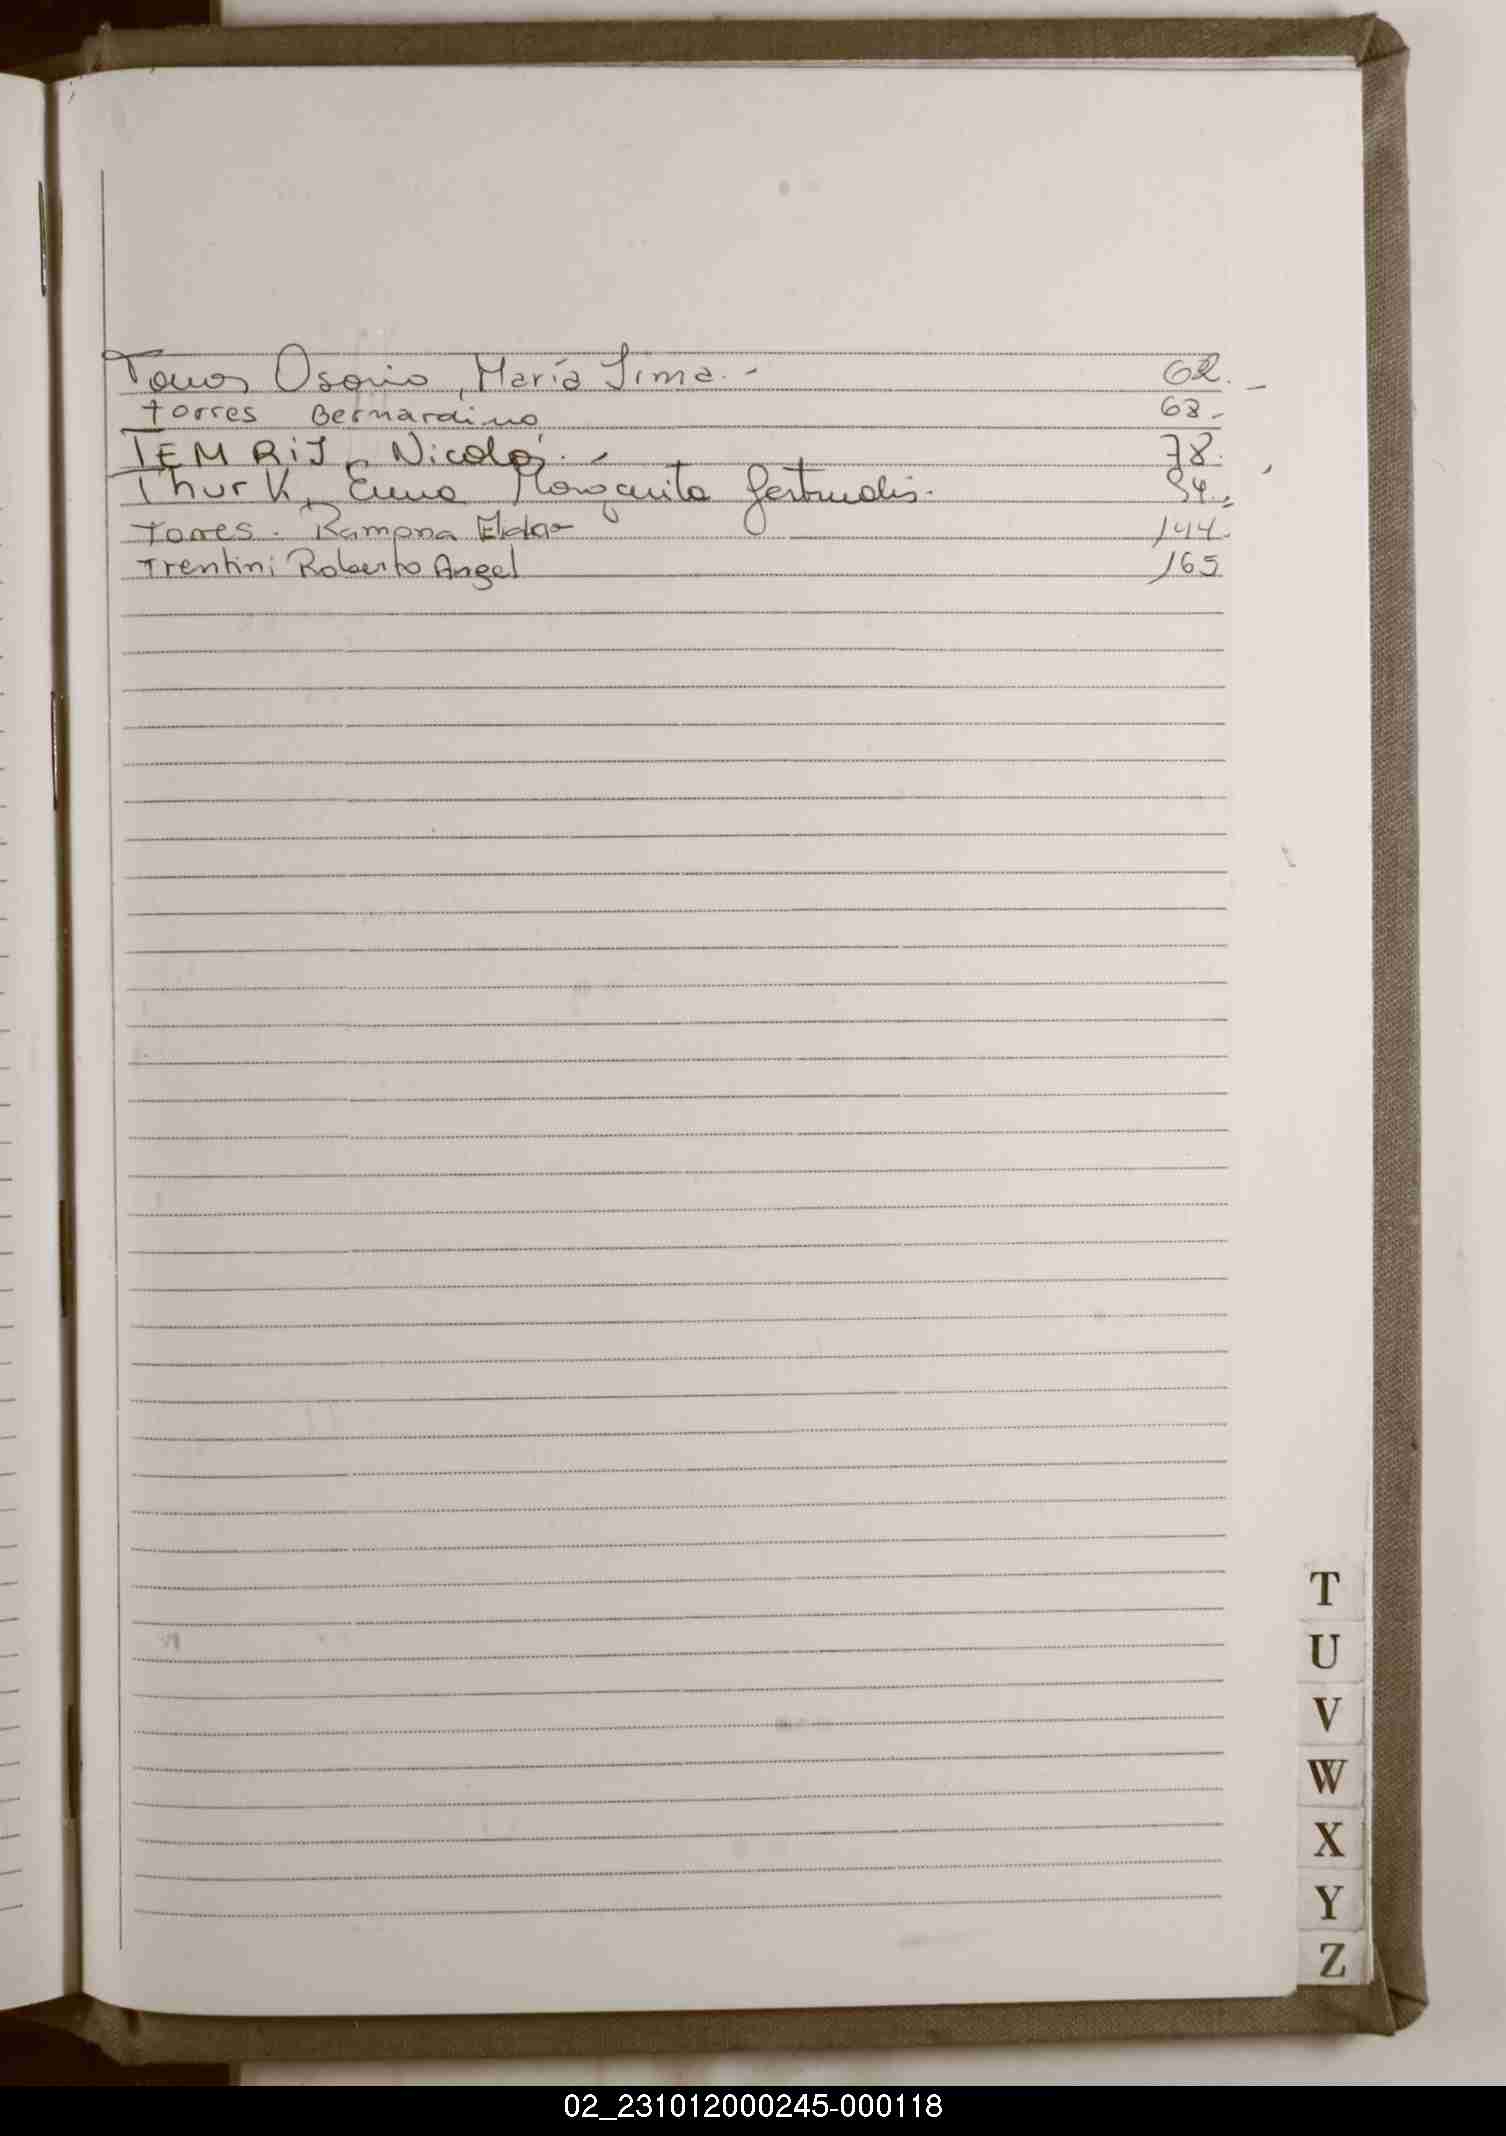 Torres Osorio, María Sima.- 62.-
Torres Bernardino 68.-
TEMRIJ, Nicolás.- 78.
Thurk, Emma Margarita Gertrudis. 94.-
Torres. Ramona Elda 144.
Trentini Roberto Angel 165
T
U
V
W
X
Y
Z
02_231012000245-000118